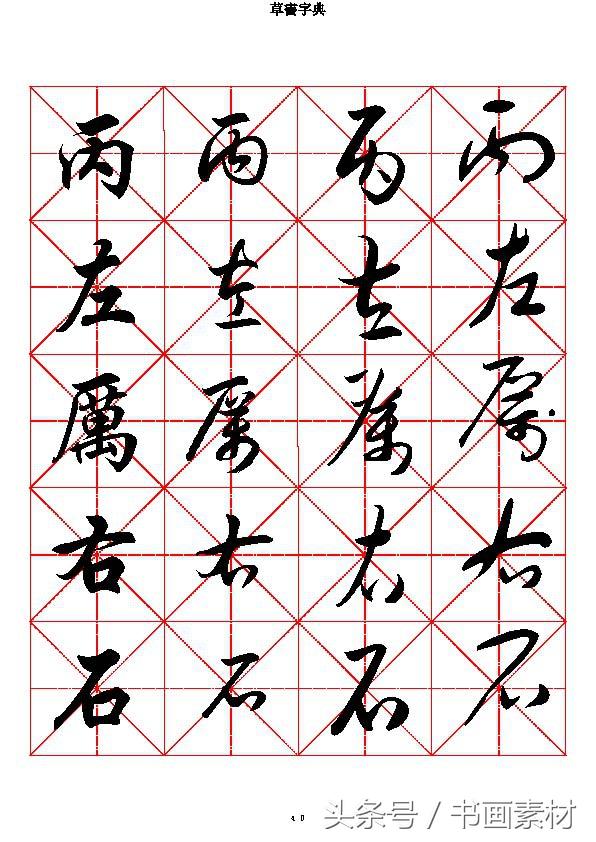 草書字典
丙 丙 丙 丙
左 左 左 左
厲 厲 厲 厲
右 右 右 右
石 石 石 石
40
头条号 / 书画素材